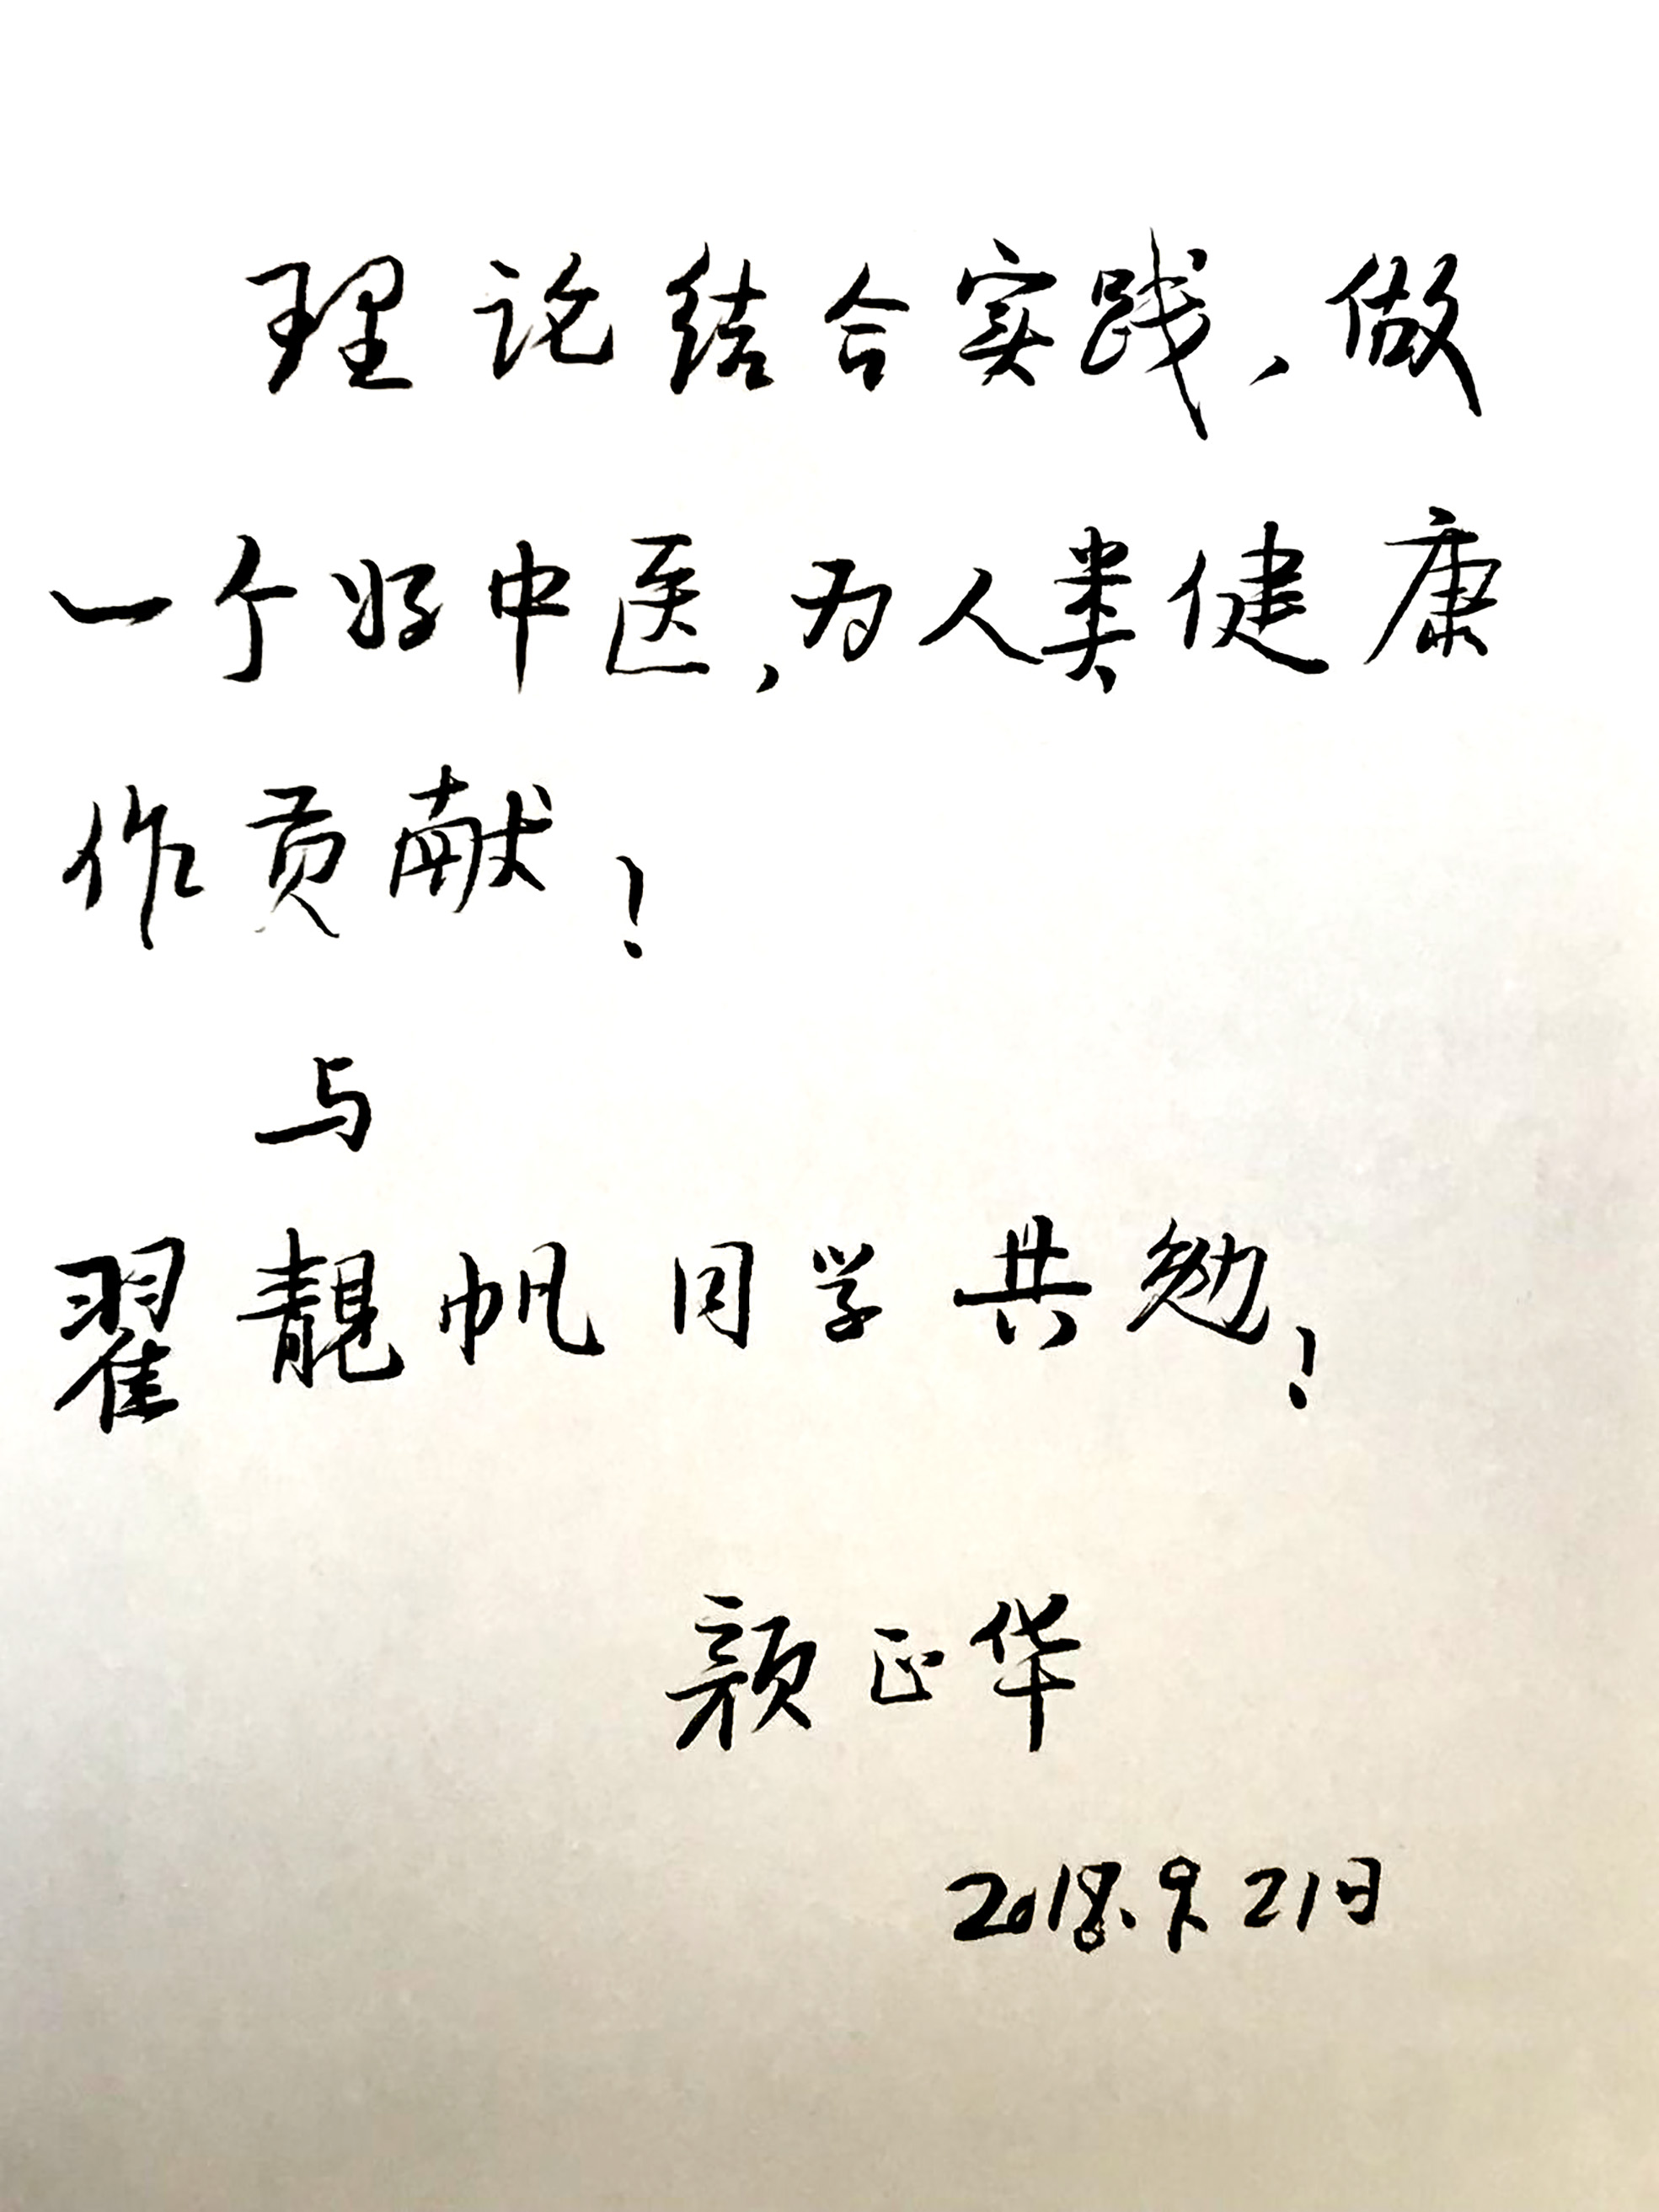 理论结合实践,做
一个好中医,为人类健康
作贡献!
与
翟靓帆同学共勉!
颜正华
2018.9.21日